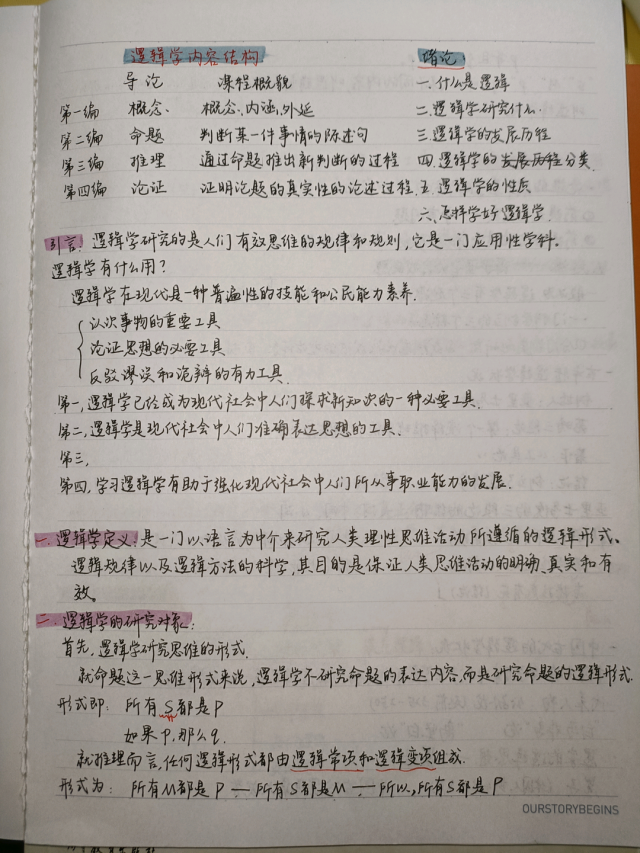 逻辑学内容结构 绪论
导论 课程概貌 一.什么是逻辑
第一编 概念 概念、内涵、外延 二.逻辑学研究什么
第二编 命题 判断某一件事情的陈述句 三.逻辑学的发展历程
第三编 推理 通过命题推出新判断的过程 四.逻辑学的发展历程分类
第四编 论证 证明论题的真实性的论述过程 五.逻辑学的性质
六.怎样学好逻辑学
引言:逻辑学研究的是人们有效思维的规律和规则,它是一门应用性学科.
逻辑学有什么用?
逻辑学在现代是一种普遍性的技能和公民能力素养.
认识事物的重要工具
论证思想的必要工具
反驳谬误和诡辩的有力工具.
第一,逻辑学已经成为现代社会中人们探求新知识的一种必要工具.
第二,逻辑学是现代社会中人们准确表达思想的工具.
第三,
第四,学习逻辑学有助于强化现代社会中人们所从事职业能力的发展.
一.逻辑学定义:是一门以语言为中介来研究人类理性思维活动所遵循的逻辑形式、
逻辑规律以及逻辑方法的科学,其目的是保证人类思维活动的明确、真实和有
效。
二.逻辑学的研究对象:
首先,逻辑学研究思维的形式.
就命题这一思维形式来说,逻辑学不研究命题的表达内容,而是研究命题的逻辑形式.
形式即: 所有S都是P
如果p,那么q.
就推理而言,任何逻辑形式都由逻辑常项和逻辑变项组成.
形式为: 所有M都是P — 所有S都是M — 所以,所有S都是P
OURSTORYBEGINS